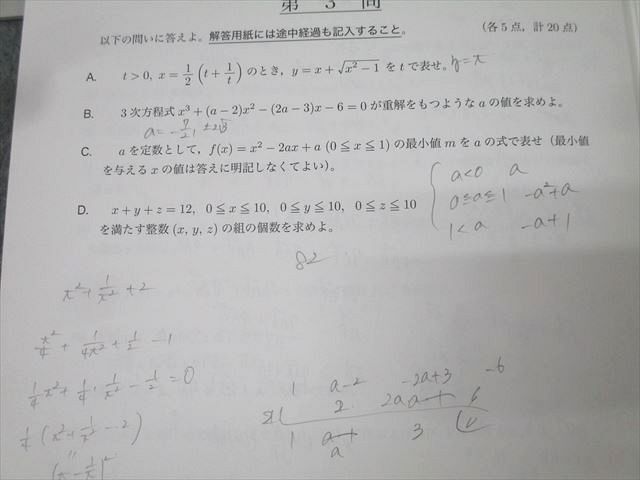 第 3 問
以下の問いに答えよ。解答用紙には途中経過も記入すること。 (各5点,計20点)
A. t > 0, x = 1/2 (t + 1/t) のとき, y = x + √(x² − 1) を t で表せ。 y = x
B. 3次方程式 x³ + (a − 2)x² − (2a − 3)x − 6 = 0 が重解をもつような a の値を求めよ。
a = −7/2, ±2√3
C. a を定数として, f(x) = x² − 2ax + a (0 ≦ x ≦ 1) の最小値 m を a の式で表せ(最小値
を与える x の値は答えに明記しなくてよい)。
a<0 a
0≦a≦1 −a²+a
1<a −a+1
D. x + y + z = 12, 0 ≦ x ≦ 10, 0 ≦ y ≦ 10, 0 ≦ z ≦ 10
を満たす整数 (x, y, z) の組の個数を求めよ。
82
x² + 1/x² + 2
x²/4 + 1/4x² + 1/2 − 1
1/4 x² + 1/4 · 1/x² − 1/2 = 0
1/4 (x² + 1/x² − 2)
(x − 1/x)²
1 a−2 −2a+3 −6
2 2a 6
1 a 3